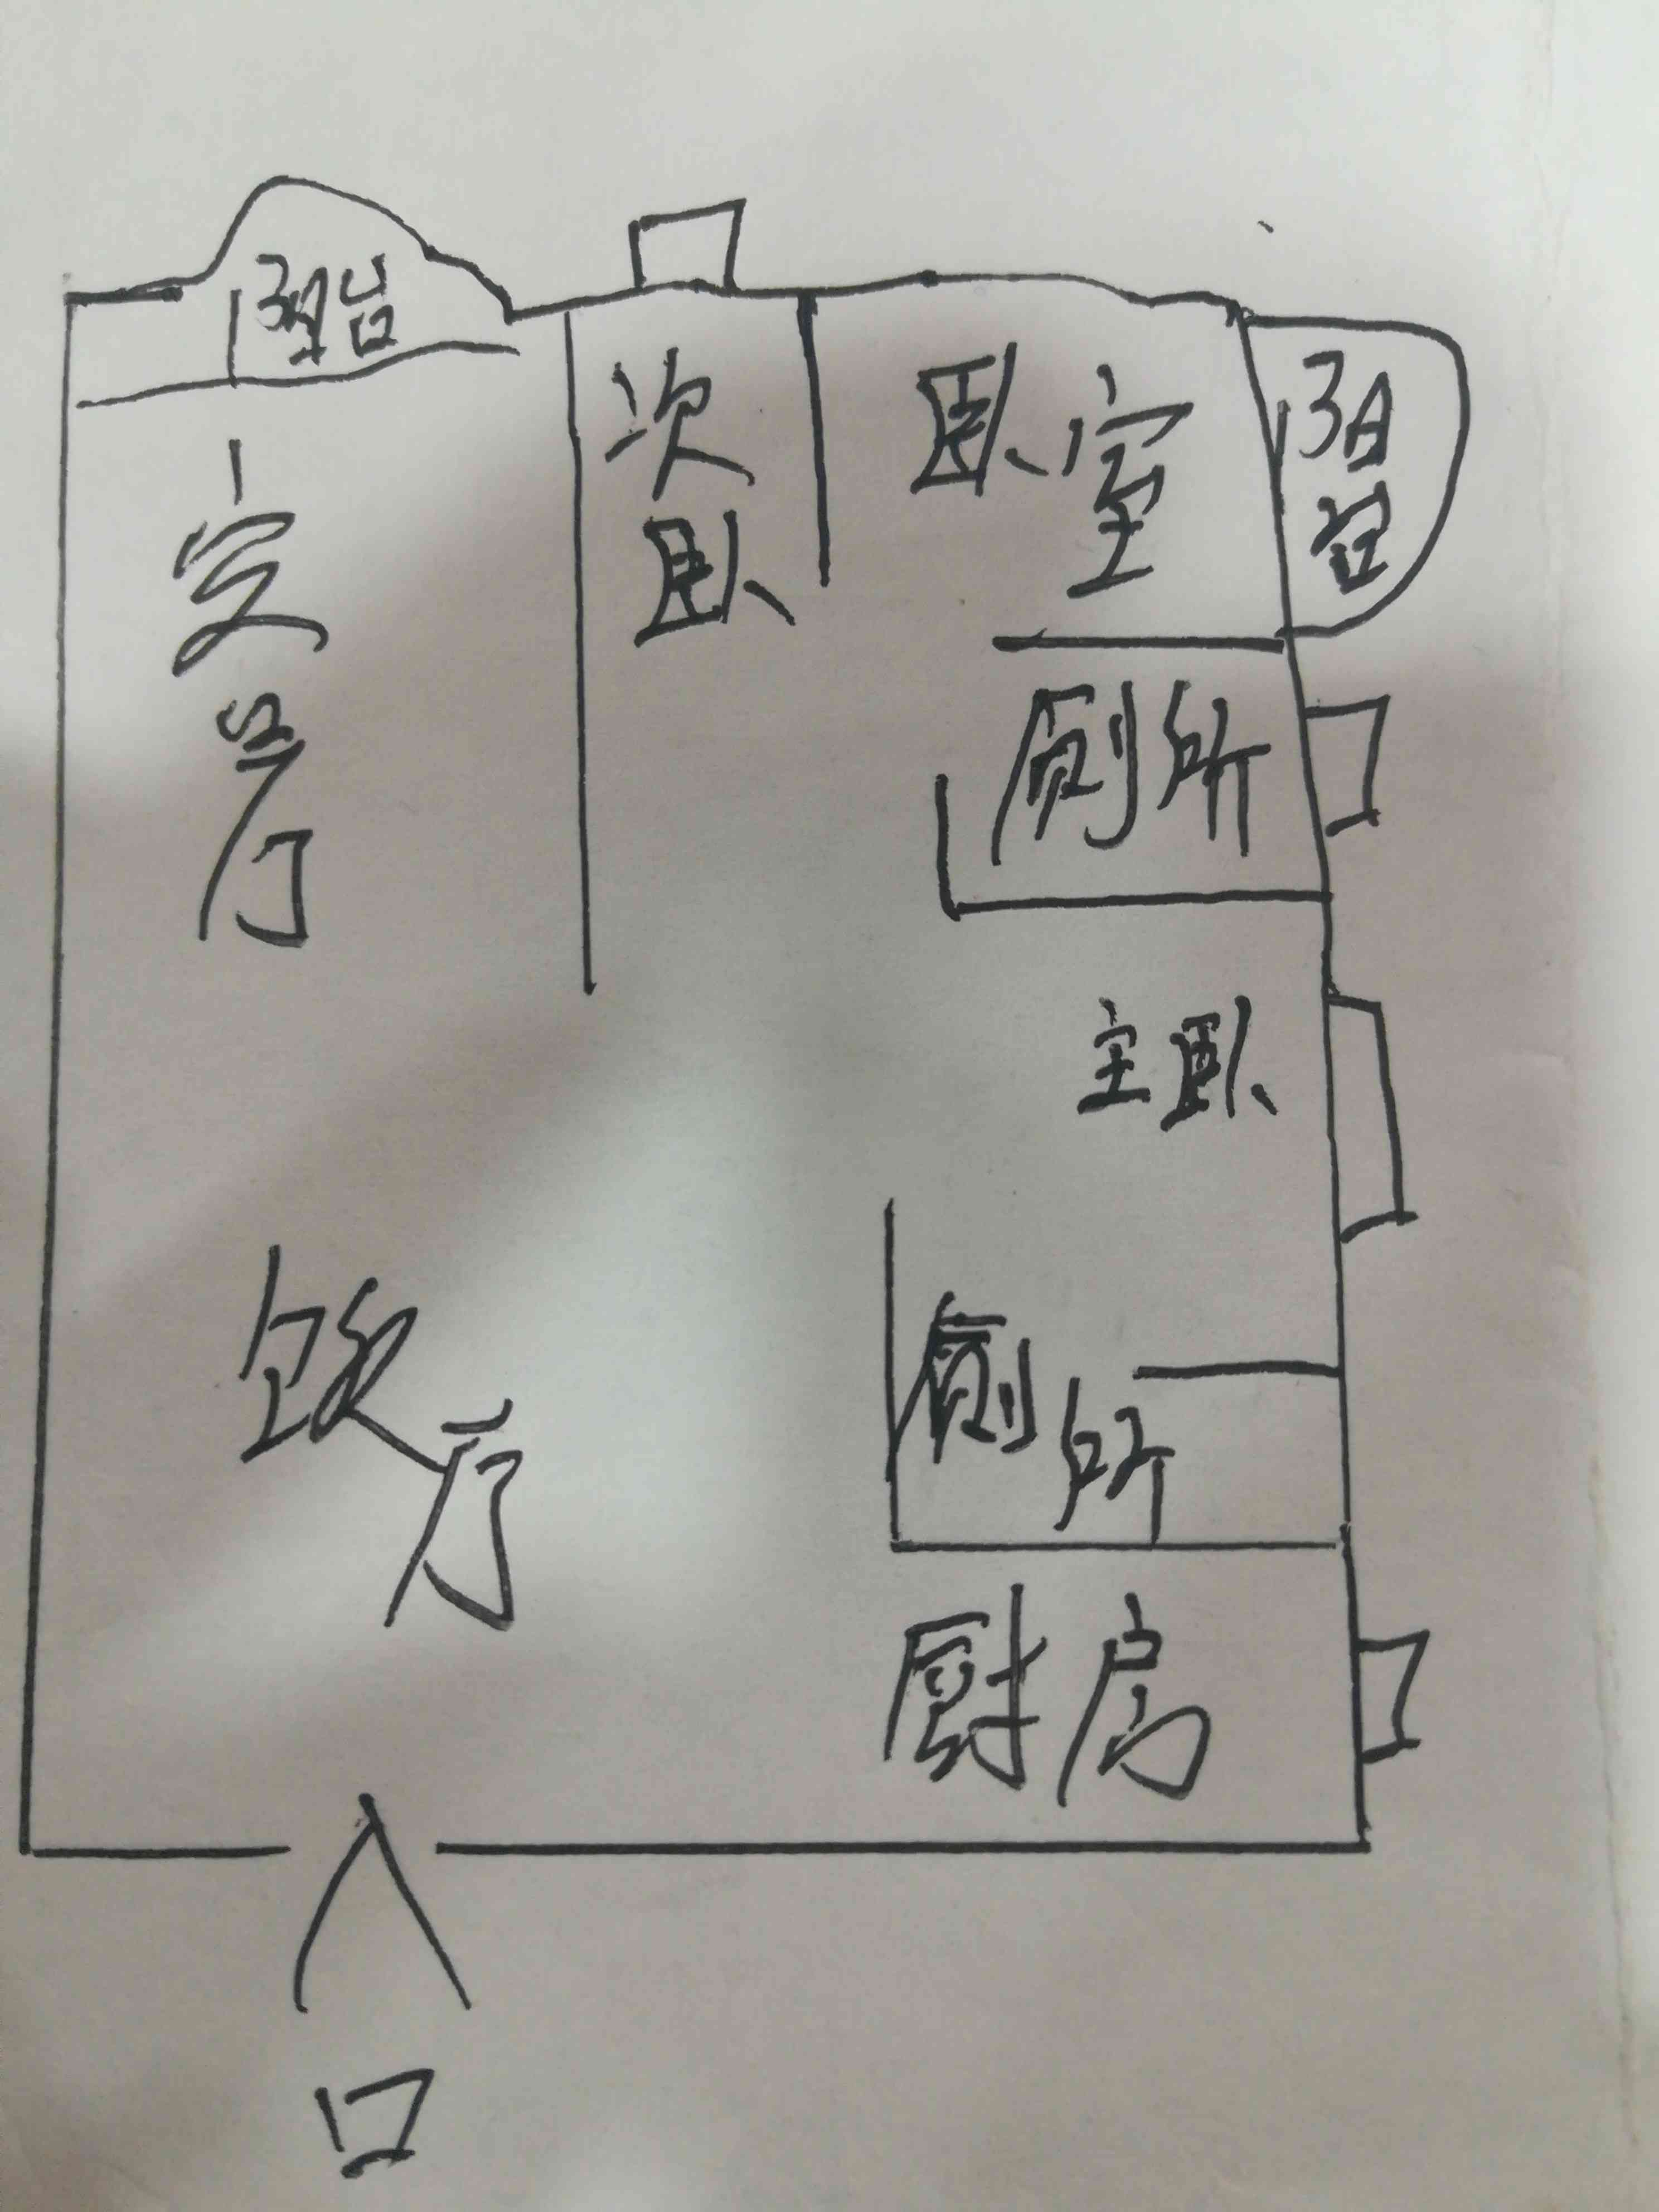 阳台
次卧
卧室
阳台
客厅
厕所
主卧
饭厅
厕所
厨房
入口